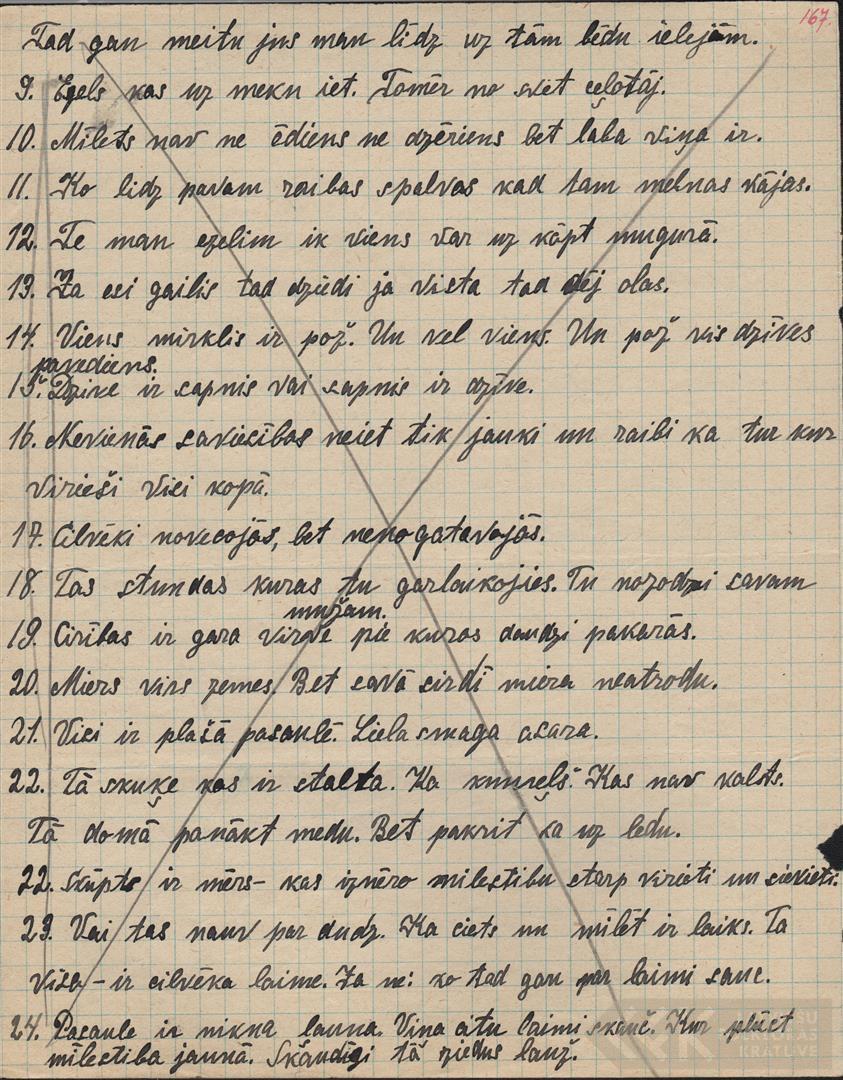 167.
Tad gan meitu jus man līdz uz tām bēdu ielejām.
9. Ezels kas uz meku iet. Tomēr no svēt ceļotāj.
10. Mīlets nav ne ēdiens ne dzēriens bet laba viņa ir.
11. Ko lidz pavam raibas spalvas kad tam melnas kājas.
12. Te man ezelim ik viens var uz kāpt mugurā.
13. Ja esi gailis tad dziedi ja vista tad dēj olas.
14. Viens mirklis ir pož. Un vel viens. Un pož vis dzīves
pavediens.
15. Dzive ir sapnis vai sapnis ir dzīve.
16. Nevienās saviesības neiet tik jauki un raibi ka tur kur
virieši visi kopā.
17. Cilvēki novecojās, bet nenogatavojās.
18. Tas stundas kuras tu garlaikojies. Tu nozodzi savam
mužam.
19. Cirības ir gara virve pie kuras daudzi pakarās.
20. Miers virs zemes. Bet savā sirdī miera neatrodu.
21. Visi ir plašā pasaulē. Liela smaga asara.
22. Tā skuķe kas ir stalta. Ka kumeļš. Kas nav kalsts.
Tā domā panākt medu. Bet pakrit ka uz ledu.
22. Skūpts ir mērs - kas izmēro milestibu starp virieti un sievieti.
23. Vai tas nauv par dudz. Ka ciets un mīlēt ir laiks. Ta
visa - ir cilvēka laime. Ja ne: ko tad gan par laimi sauc.
24. Pasaule ir nikna launa. Viņa citu laimi skauž. Kur plūst
mīlestiba jaunā. Skaudīgi tā ziedus lauž.